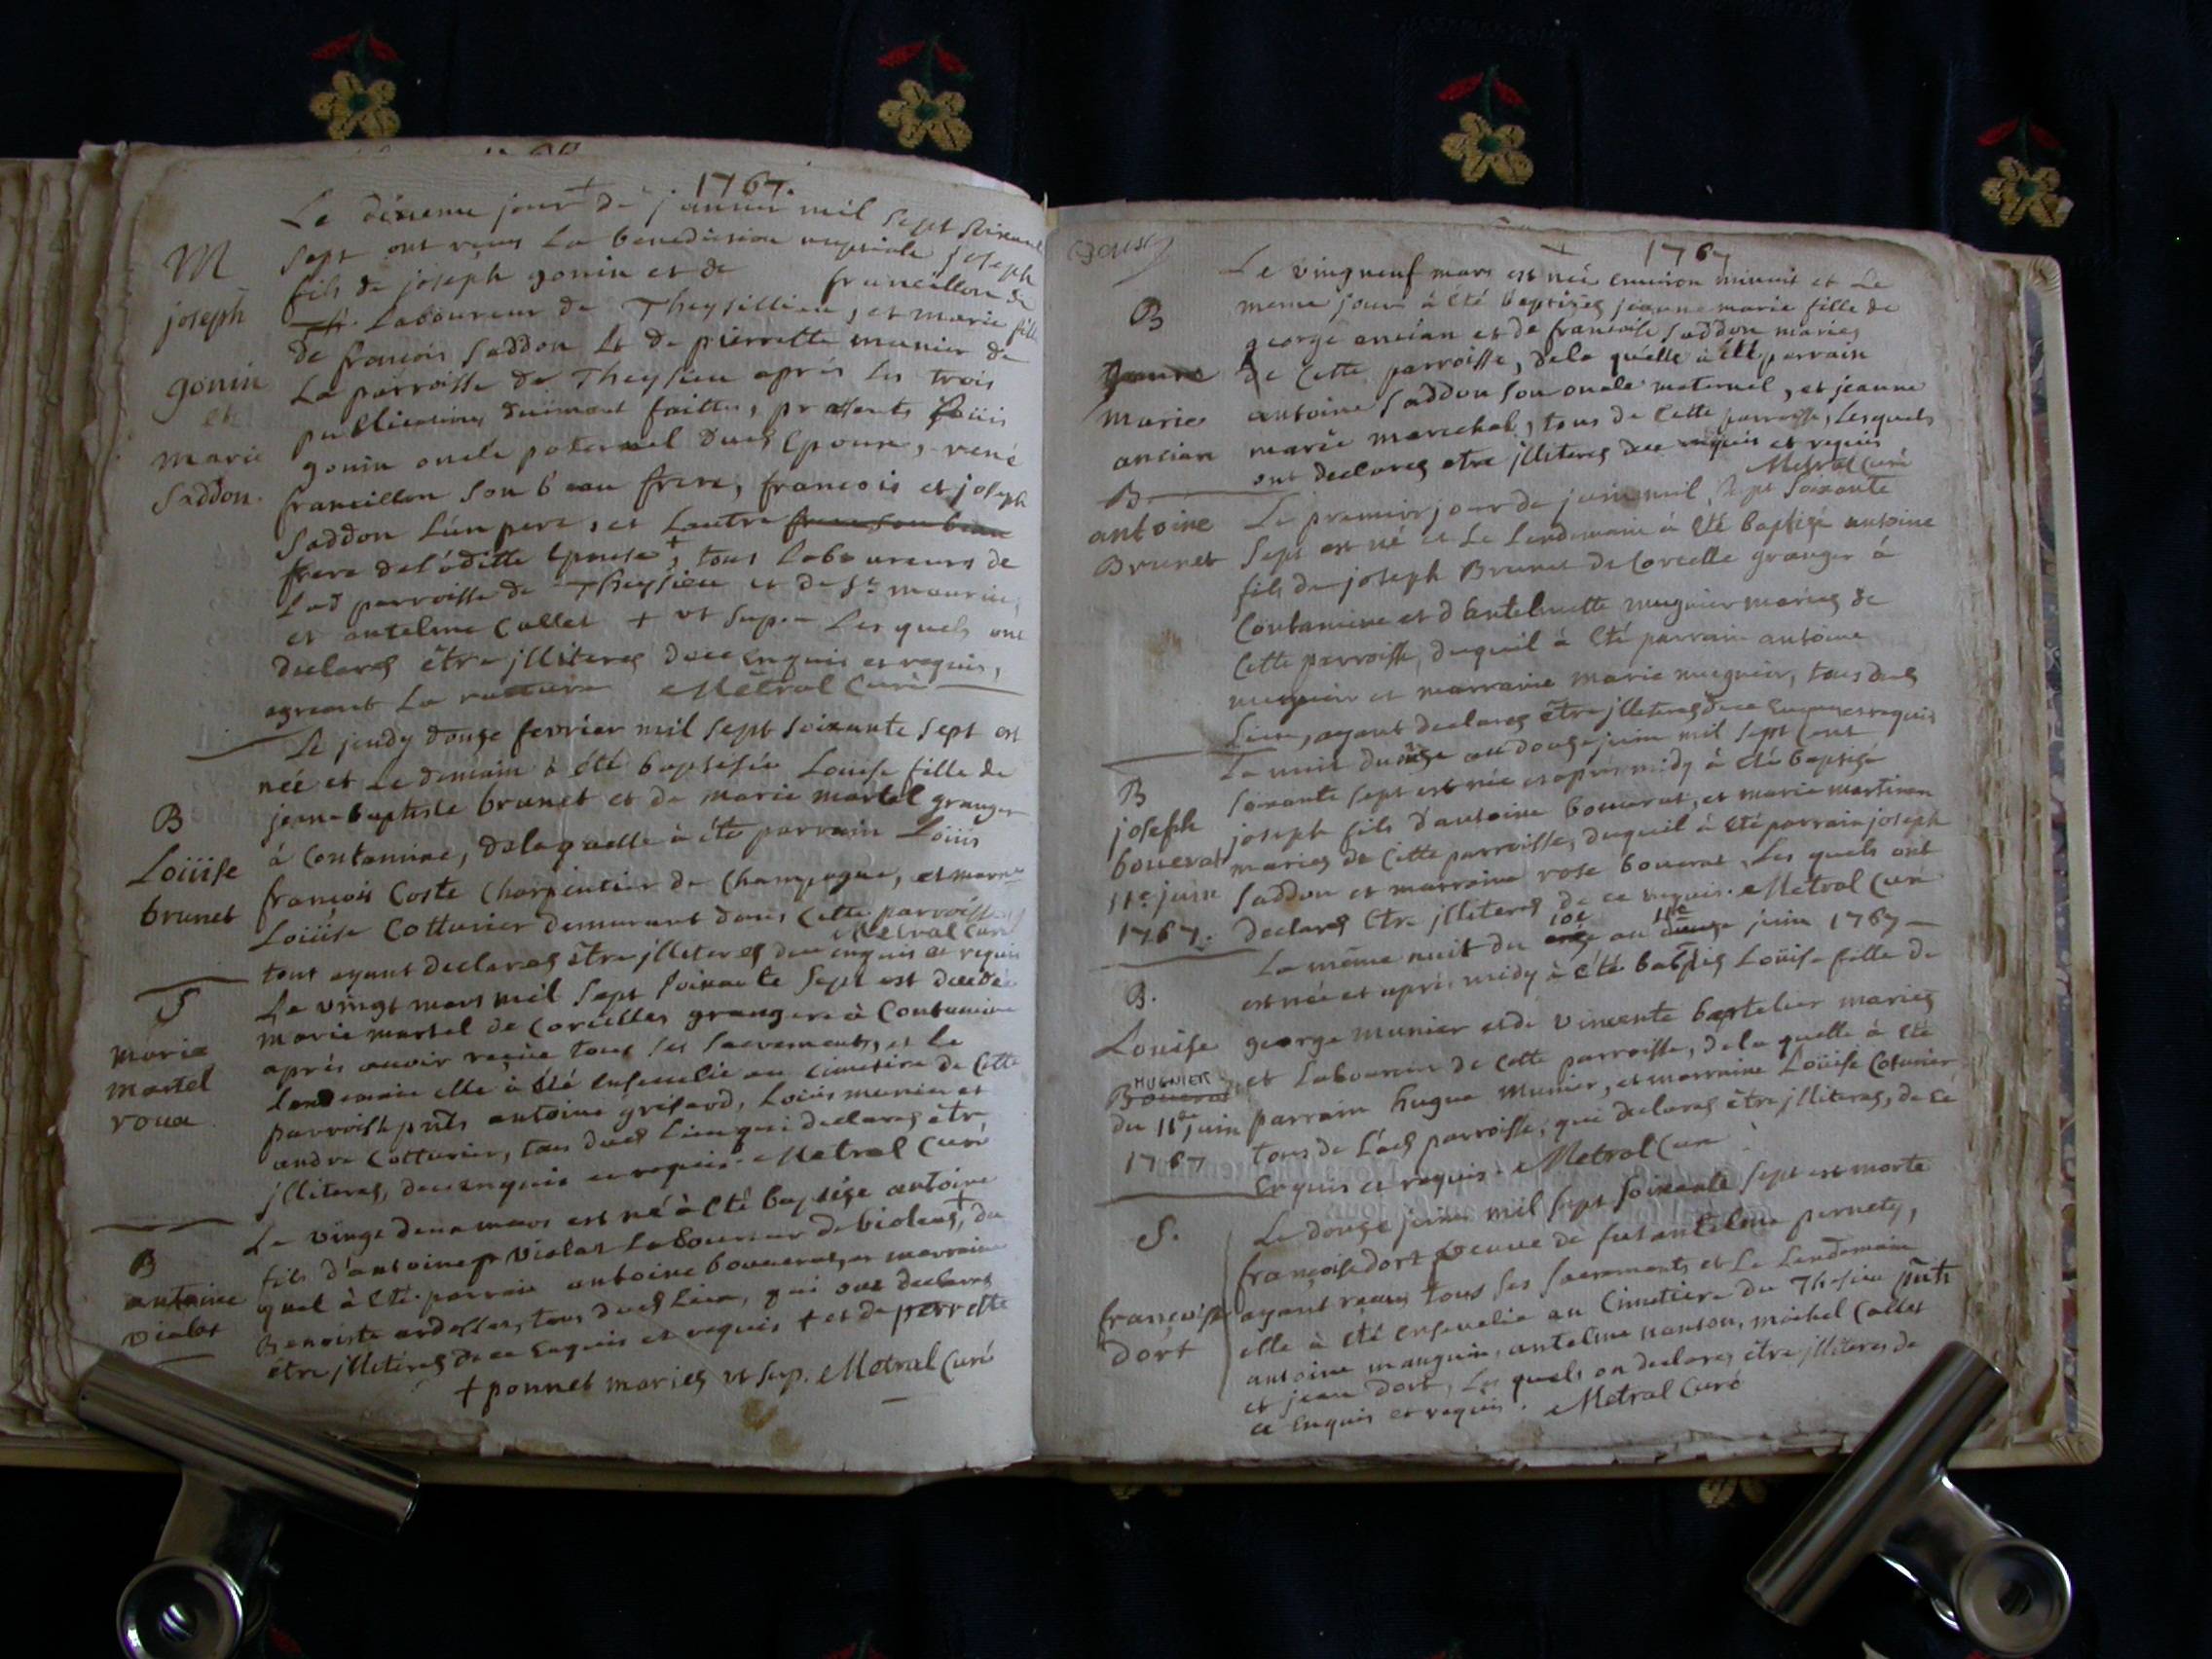 1767.
Le dixieme jour de janvier mil sept soixante
M
sept ont reçus La benediction nuptiale joseph
fils de joseph gonin et de francillon de
joseph
Laboureur de Theysillieu, et marie fille
de francois saddon et de pierrette munier de
gonin
La parroisse de Theysieu aprés les trois
et
publications duëment faittes, presents Loüis
marie
gonin oncle paternel dud epoux, rené
saddon.
francillon son beau frere, francois et joseph
saddon L'un pere, et Lautre frere son beau
frere de Laditte Epouse +, tous Laboureurs de
Lad parroisse de Theysieu et de St maurice,
et antelme Callet + ut sup. Les quels ont
declares être jlliteres de ce enquis et requis,
agreant La rature Métral Curé
Le jeudy douze fevrier mil sept soixante sept est
née et Le demain à été baptisée Louise fille de
B
jean baptiste brunet et de marie martel granger
Loiiise
à Contamine, de la quelle à été parrain Loüis
brunet
francois Coste Charpentier de Champagne, et marne
Loüise Cotturier demeurant dans Cette parroisse
Metral Curé
tout ayant declares être jlliteres de ce enquis et requis
S
Le vingt mars mil sept soixante sept est decedée
marie martel de Corcelles grangere à Contamine
marie
martel
aprés avoir reçüe tous ses sacrements, et Le
roux
Lendemain elle à été ensevelie au cimetiere de Cette
parroisse pnts antoine grifard, Loüis munier et
andre Cotturier, tous dud Lieu qui declares être
jlliteres, de ce enquis et requis. Metral Curé
Le vingt deux mars est né à été baptisé antoine
B
fils d'antoine violat Laboureur de violeus +, du
antoine
quel à été parrain antoine bouverat, et marraine
violat
Benoiste ardessan, tous dud Lieu, qui ont declares
être jlliteres de ce Enquis et requis + et de perrette
+ ponnet mariés ut sup. Metral Curé
1767
Le vingneuf mars est née environ minuit et Le
B
meme jour à été baptisée jeanne marie fille de
george ancian et de francoise saddon mariés
Jeanne
de Cette parroisse, de la quelle à été parrain
marie
antoine saddon son oncle maternel, et jeanne
ancian
marie marechal, tous de Cette parroisse, Lesquels
ont declares etre jlliteres de ce enquis et requis
Metral Curé
B
antoine
Le premier jour de juin mil sept soixante
Brunet
sept est né et Le Lendemain à été baptisé antoine
fils de joseph Brunet de Corcelle granger à
Contamine et d'antelmette mugnier mariés de
Cette parroisse, duquel à été parrain antoine
mugnier et marraine marie mugnier, tous dud
Lieu, ayant declares être jlliteres de ce Enquis et requis
La nuit du onze au douze juin mil sept Cent
B
soixante sept est née et aprés midy à été baptisé
joseph
joseph fils d'antoine bouverat, et marie martinan
bouverat
mariés de Cette parroisse, duquel à été parrain joseph
11e juin
saddon et marraine rose bouverat, Les quels ont
1767.
declares Etre jlliteres de ce enquis. Metral Curé
La même nuit du onze 10e au douze 11e juin 1767
B.
est née et aprés midy à été baptisée Loüise fille de
Louise
george munier et de vincente bartelier mariés
MUGNIER
Bouverat
et Laboureur de Cette parroisse, de la quelle à été
du 11e juin
parrain hugue munier, et marraine Loüise Coturier
1767
tous de Lad parroisse, qui declares être jlliteres, de cé
Enquis et requis. Metral Curé
S.
Le douze juin mil sept soixante sept est morte
françoise dort veuve de fut antelme pernety,
ayant reçus tous ses sacrements et Le Lendemain
francoise
elle à été ensevelie au Cimetiere du Thesieu pnts
dort
antoine manguin, antelme nanton, michel Callet
et jean dort, Les quels on declares être jlliteres de
ce enquis et requis. Metral Curé